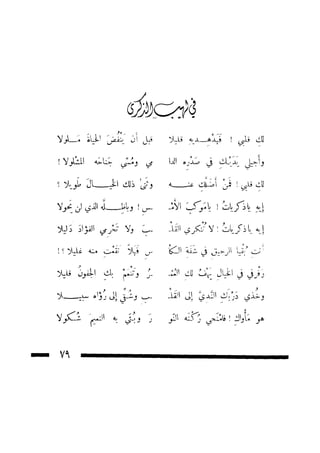 في لهيب الذكرى
لكِ قلبي ! قَيِّدْهِــديهِ قليلا قبل أن يَنْفُضَ الحياةَ مَــلولا
وأحيلي يَدَيْــكِ في صَدْرِه الدا مي ومُسّي جَناحَه المشْلولا !
لكِ قلبي ! فَمَنْ أضَلَّكِ عنــه وثنى ذلك الخيــالَ طويلا ؟
إيهِ ياذكرياتُ ! ياموكبَ الأمـ ـسِ ! وياظِــلَّه الذي لن يَحولا
إيه ياذكرياتُ ! لا تُنكري القلـ ـبَ ولا تَتْرُمي الفؤادَ ذليلا
أنت بُقْيا الرحيق في شَفَةِ الكأ سِ قَبْلاً نَقَعْتِ منه غليلا ؟!
رفْرِفي في الخيالِ يَهْفُ لك العُمـ ـرُ وتَنْعَمْ بكِ الجفونُ قليلا
وخُذي دَرْبَكِ النَّديَّ إلى القلـ ـبِ وشُقّي إلى رُؤاه سبيــلا
هو مأْواكِ ! فامْنَحي رُكْنَه النو رَ وبُثّي به النعيمَ شكولا
٧٩